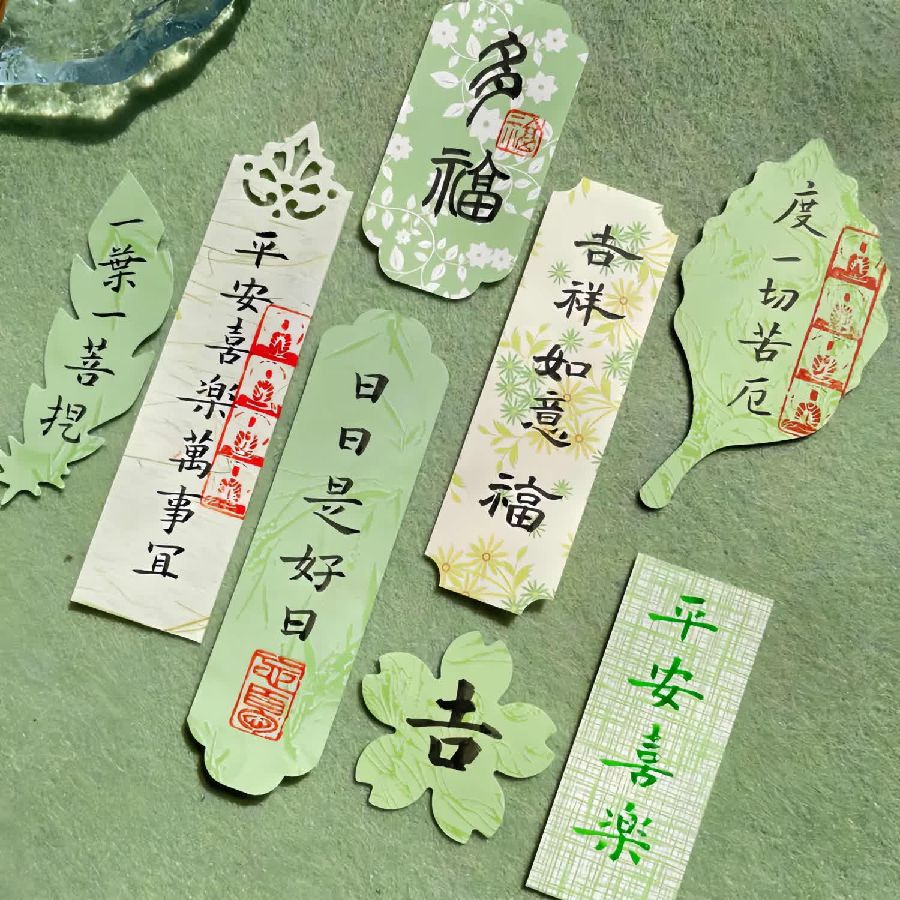 一葉一菩提
平安喜樂萬事宜
多福
福
日日是好日
吉祥如意福
度一切苦厄
吉
平安喜楽